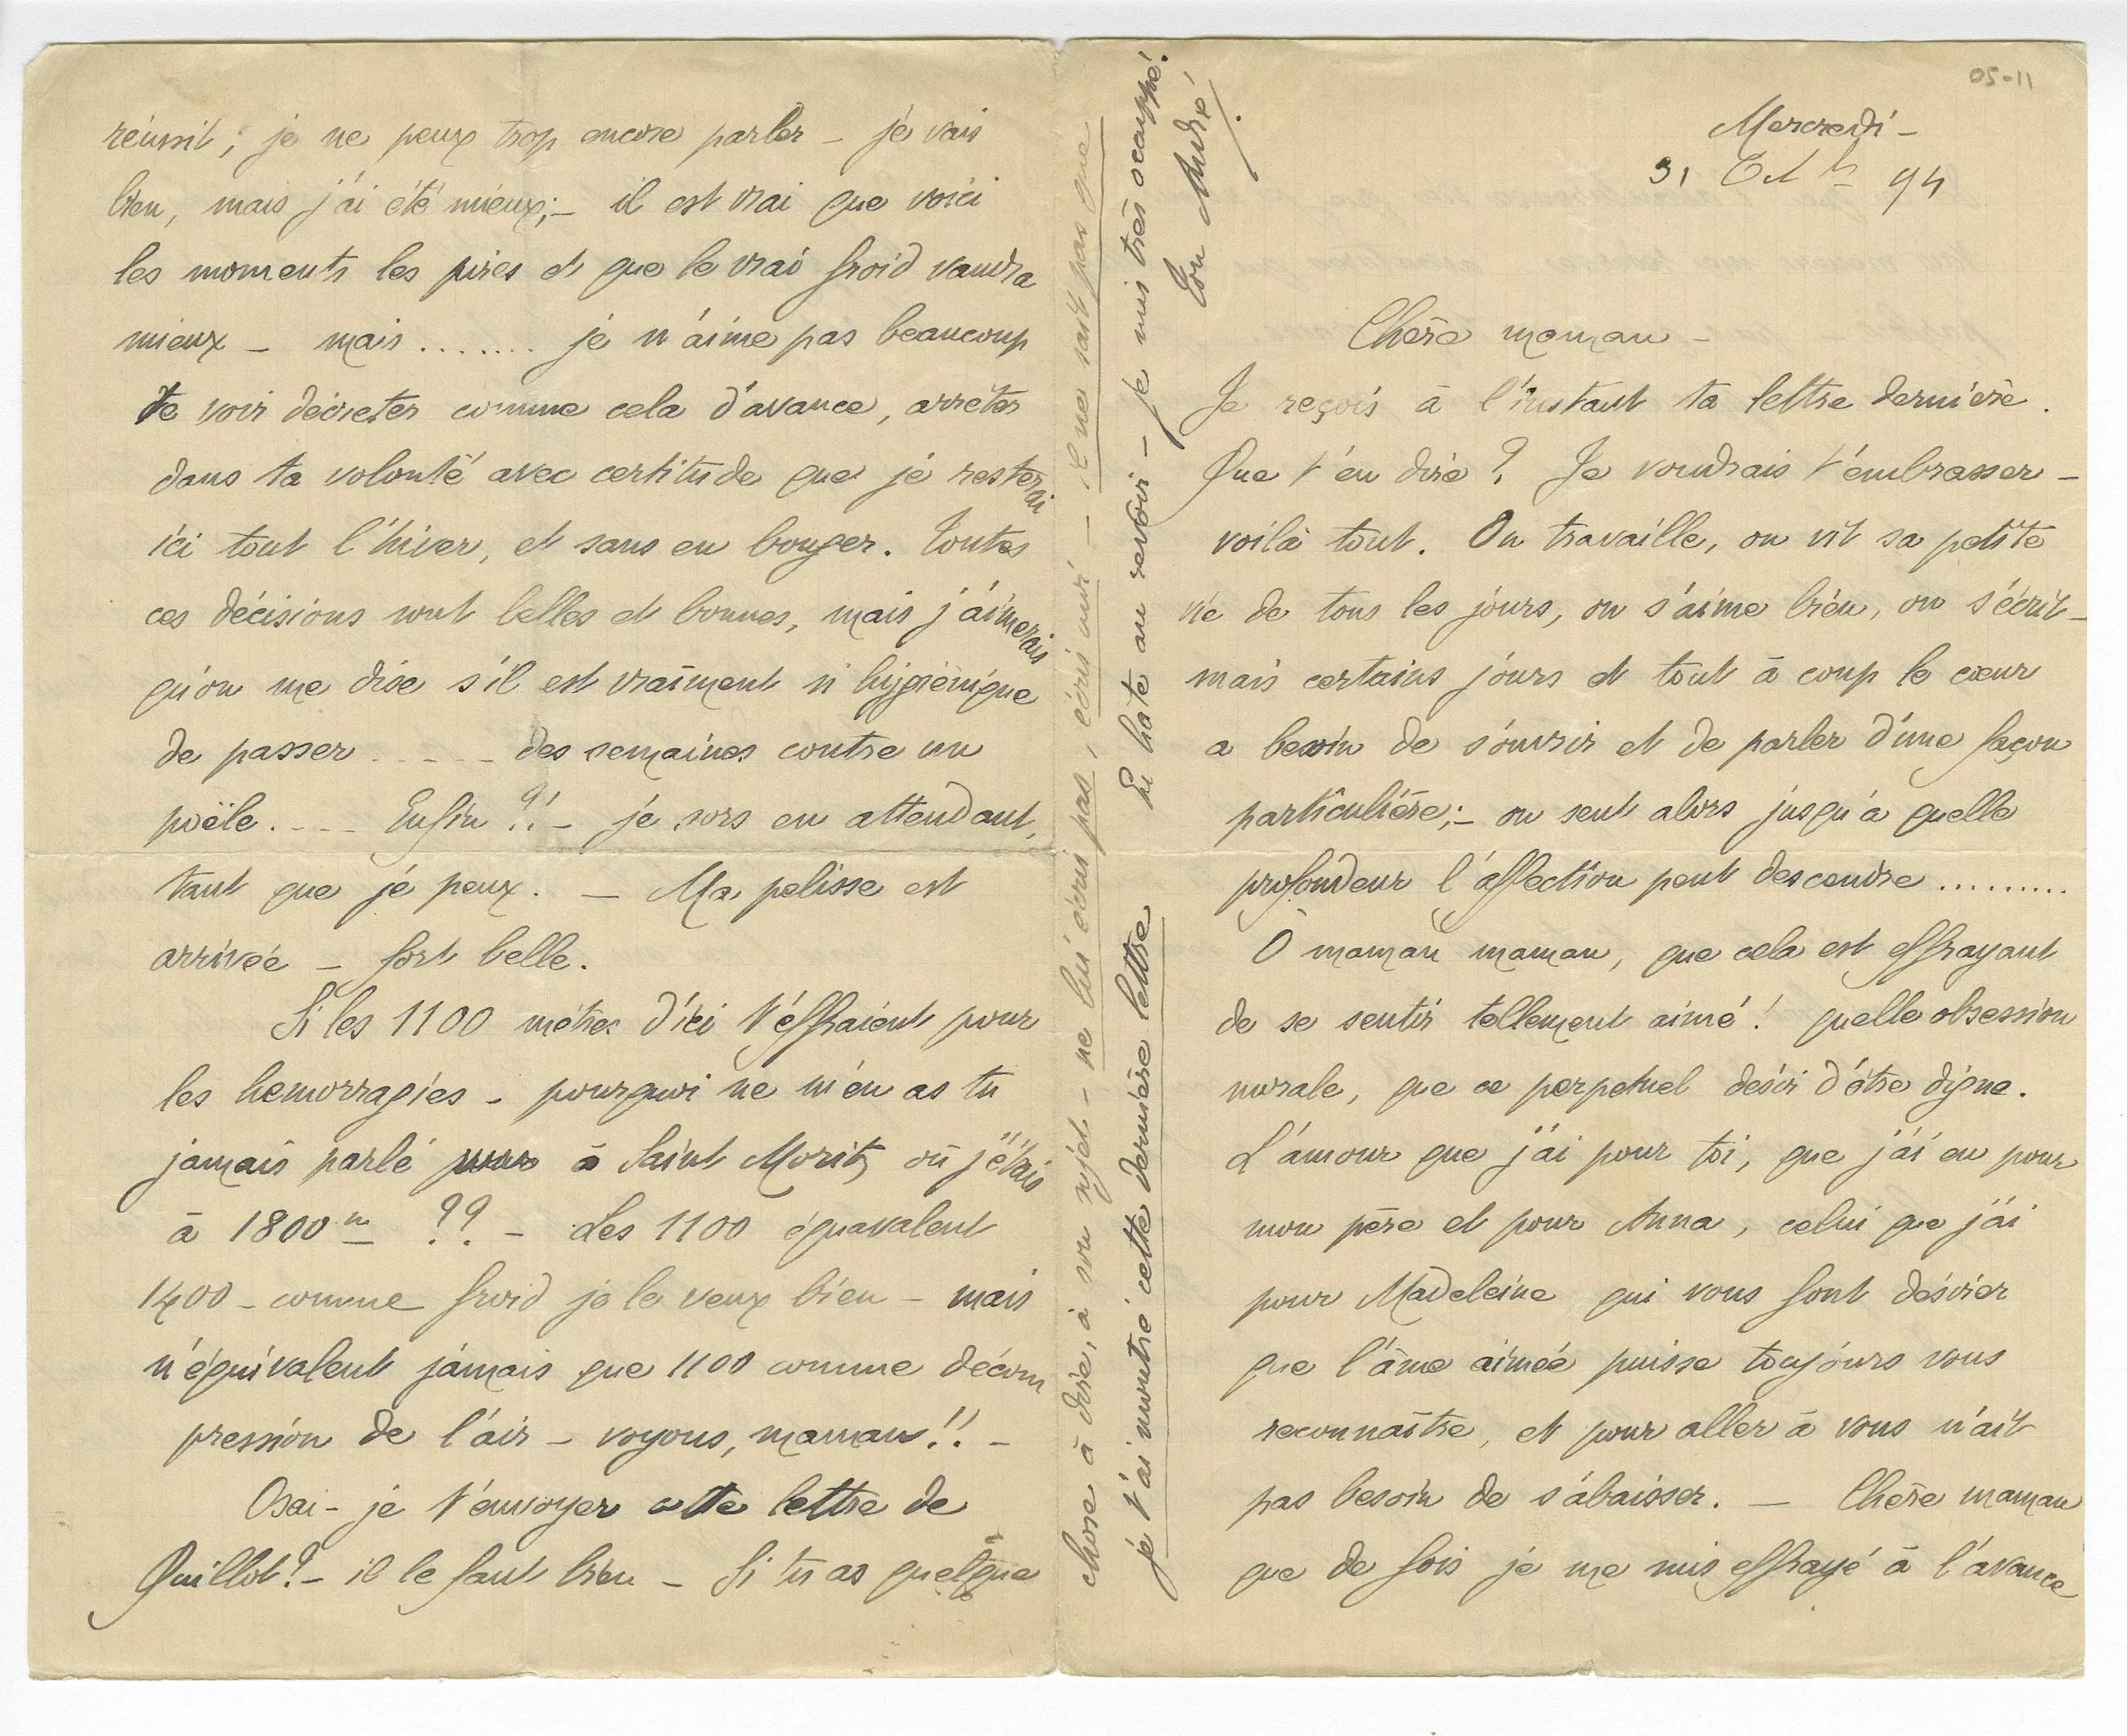 05-11
Mercredi -
31 Oct bre 94
Chère maman -
Je reçois à l'instant ta lettre dernière.
Que t'en dire ? Je voudrais t'embrasser -
voilà tout. On travaille, on vit sa petite
vie de tous les jours, on s'aime bien, on s'écrit -
mais certains jours et tout à coup le cœur
a besoin de s'ouvrir et de parler d'une façon
particulière; - on sent alors jusqu'à quelle
profondeur l'affection peut descendre .........
O maman maman, que cela est effrayant
de se sentir tellement aimé ! quelle obsession
morale, que ce perpetuel désir d'être digne.
L'amour que j'ai pour toi, que j'ai eu pour
mon père et pour Anna, celui que j'ai
pour Madeleine qui vous font désirer
que l'âme aimée puisse toujours vous
reconnaître, et pour aller à vous n'ait
pas besoin de s'abaisser. — Chère maman
que de fois je me suis effrayé à l'avance
réussit ; je ne peux trop encore parler - je vais
bien, mais j'ai été mieux; - il est vrai que voici
les moments les pires et que le vrai froid vaudra
mieux - mais ....... je n'aime pas beaucoup
te voir décreter comme cela d'avance, arrêter
dans ta volonté avec certitude que je resterai
ici tout l'hiver, et sans en bouger. Toutes
ces décisions sont belles et bonnes, mais j'aimerais
qu'on me dise s'il est vraiment si hygiénique
de passer ..... des semaines contre un
poële .... Enfin ?! - je sors en attendant,
tant que je peux. — Ma pelisse est
arrivée - fort belle.
Si les 1100 mètres d'ici t'effraient pour
les hemorragies - pourquoi ne m'en as tu
jamais parlé à Saint Moritz où j'étais
à 1800 m ?? - Les 1100 équavalent
1400 - comme froid je le veux bien - mais
n'équivalent jamais que 1100 comme décom
pression de l'air - voyons, maman !! -
Osai-je t'envoyer cette lettre de
Quillot ? - il le faut bien - Si tu as quelque
chose à dire, à son sujet - ne lui écris pas, écris moi - il ne sait pas que
je t'ai montré cette dernière lettre
En hâte au revoir - je suis très occuppé.
Ton André